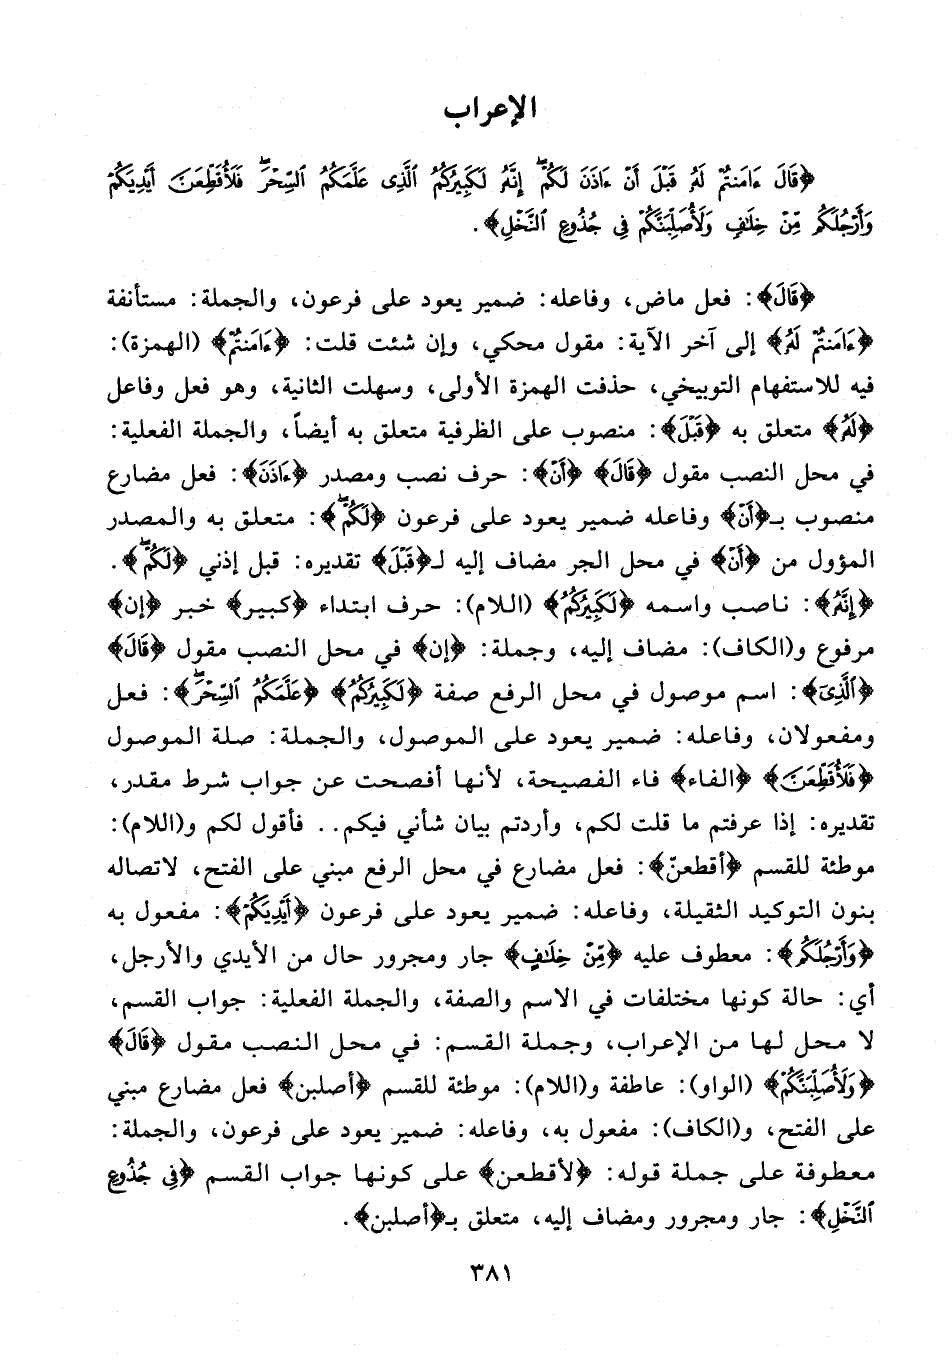 الإعراب
﴿قَالَ ءَامَنتُمْ لَهُۥ قَبْلَ أَنْ ءَاذَنَ لَكُمْ ۖ إِنَّهُۥ لَكَبِيرُكُمُ ٱلَّذِى عَلَّمَكُمُ ٱلسِّحْرَ ۖ فَلَأُقَطِّعَنَّ أَيْدِيَكُمْ
وَأَرْجُلَكُم مِّنْ خِلَٰفٍ وَلَأُصَلِّبَنَّكُمْ فِى جُذُوعِ ٱلنَّخْلِ﴾.
﴿قَالَ﴾: فعل ماض، وفاعله: ضمير يعود على فرعون، والجملة: مستأنفة
﴿ءَامَنتُمْ لَهُۥ﴾ إلى آخر الآية: مقول محكي، وإن شئت قلت: ﴿ءَامَنتُمْ﴾ (الهمزة):
فيه للاستفهام التوبيخي، حذفت الهمزة الأولى، وسهلت الثانية، وهو فعل وفاعل
﴿لَهُۥ﴾ متعلق به ﴿قَبْلَ﴾: منصوب على الظرفية متعلق به أيضاً، والجملة الفعلية:
في محل النصب مقول ﴿قَالَ﴾ ﴿أَنْ﴾: حرف نصب ومصدر ﴿ءَاذَنَ﴾: فعل مضارع
منصوب بـ﴿أَنْ﴾ وفاعله ضمير يعود على فرعون ﴿لَكُمْ ۖ﴾: متعلق به والمصدر
المؤول من ﴿أَنْ﴾ في محل الجر مضاف إليه لـ﴿قَبْلَ﴾ تقديره: قبل إذني ﴿لَكُمْ ۖ﴾.
﴿إِنَّهُۥ﴾: ناصب واسمه ﴿لَكَبِيرُكُمُ﴾ (اللام): حرف ابتداء ﴿كبير﴾ خبر ﴿إن﴾
مرفوع و(الكاف): مضاف إليه، وجملة: ﴿إن﴾ في محل النصب مقول ﴿قَالَ﴾
﴿ٱلَّذِى﴾: اسم موصول في محل الرفع صفة ﴿لَكَبِيرُكُمُ﴾ ﴿عَلَّمَكُمُ ٱلسِّحْرَ ۖ﴾: فعل
ومفعولان، وفاعله: ضمير يعود على الموصول، والجملة: صلة الموصول
﴿فَلَأُقَطِّعَنَّ﴾ ﴿الفاء﴾ فاء الفصيحة، لأنها أفصحت عن جواب شرط مقدر،
تقديره: إذا عرفتم ما قلت لكم، وأردتم بيان شأني فيكم.. فأقول لكم و(اللام):
موطئة للقسم ﴿أقطعنّ﴾: فعل مضارع في محل الرفع مبني على الفتح، لاتصاله
بنون التوكيد الثقيلة، وفاعله: ضمير يعود على فرعون ﴿أَيْدِيَكُمْ﴾: مفعول به
﴿وَأَرْجُلَكُم﴾: معطوف عليه ﴿مِّنْ خِلَٰفٍ﴾ جار ومجرور حال من الأيدي والأرجل،
أي: حالة كونها مختلفات في الاسم والصفة، والجملة الفعلية: جواب القسم،
لا محل لها من الإعراب، وجملة القسم: في محل النصب مقول ﴿قَالَ﴾
﴿وَلَأُصَلِّبَنَّكُمْ﴾ (الواو): عاطفة و(اللام): موطئة للقسم ﴿أصلبن﴾ فعل مضارع مبني
على الفتح، و(الكاف): مفعول به، وفاعله: ضمير يعود على فرعون، والجملة:
معطوفة على جملة قوله: ﴿لأقطعن﴾ على كونها جواب القسم ﴿فِى جُذُوعِ
ٱلنَّخْلِ﴾: جار ومجرور ومضاف إليه، متعلق بـ﴿أصلبن﴾.
٣٨١